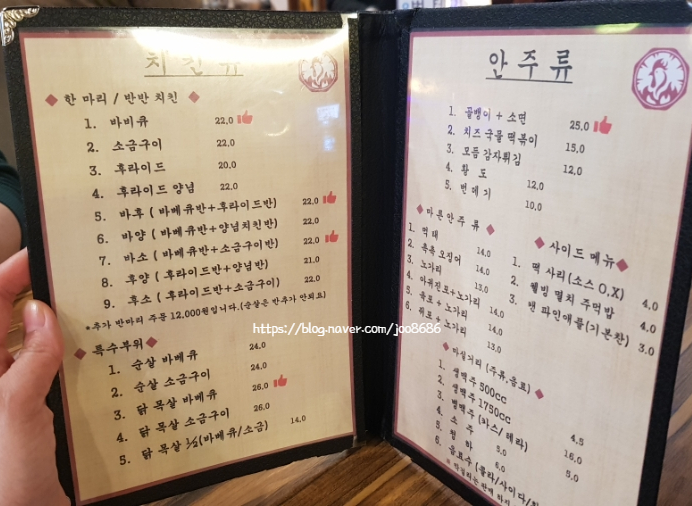 치킨류
한 마리 / 반반 치킨
1. 바비큐 22.0
2. 소금구이 22.0
3. 후라이드 20.0
4. 후라이드 양념 22.0
5. 바후 ( 바베큐반+후라이드반) 22.0
6. 바양 ( 바베큐반+양념치킨반) 22.0
7. 바소 ( 바베큐반+소금구이반) 22.0
8. 후양 ( 후라이드반+양념반) 21.0
9. 후소 ( 후라이드반+소금구이) 22.0
*추가 반마리 주문 12,000원입니다.(순살은 반추가 안되요)
특수부위
1. 순살 바베큐 24.0
2. 순살 소금구이 24.0
3. 닭 목살 바베큐 26.0
4. 닭 목살 소금구이 26.0
5. 닭 목살 1/2(바베큐/소금) 14.0
안주류
1. 골뱅이 + 소면 25.0
2. 치즈 국물 떡볶이 15.0
3. 모듬 감자튀김 12.0
4. 황 도 12.0
5. 번데기 10.0
마른안주 류
1. 먹태 14.0
2. 촉촉 오징어 14.0
3. 노가리 13.0
4. 아귀진포+노가리 14.0
5. 육포 + 노가리 14.0
6. 쥐포 + 노가리 13.0
사이드 메뉴
1. 떡 사리(소스 O,X) 4.0
2. 웰빙 멸치 주먹밥 4.0
3. 캔 파인애플(기본찬) 3.0
마실거리 (주류,음료)
1. 생맥주 500cc 4.5
2. 생맥주 1750cc 16.0
3. 병맥주 (카스/테라) 5.0
4. 소 주 5.0
5. 청 하 6.0
6. 음료수 (콜라/사이다/
https://blog.naver.com/joo8686